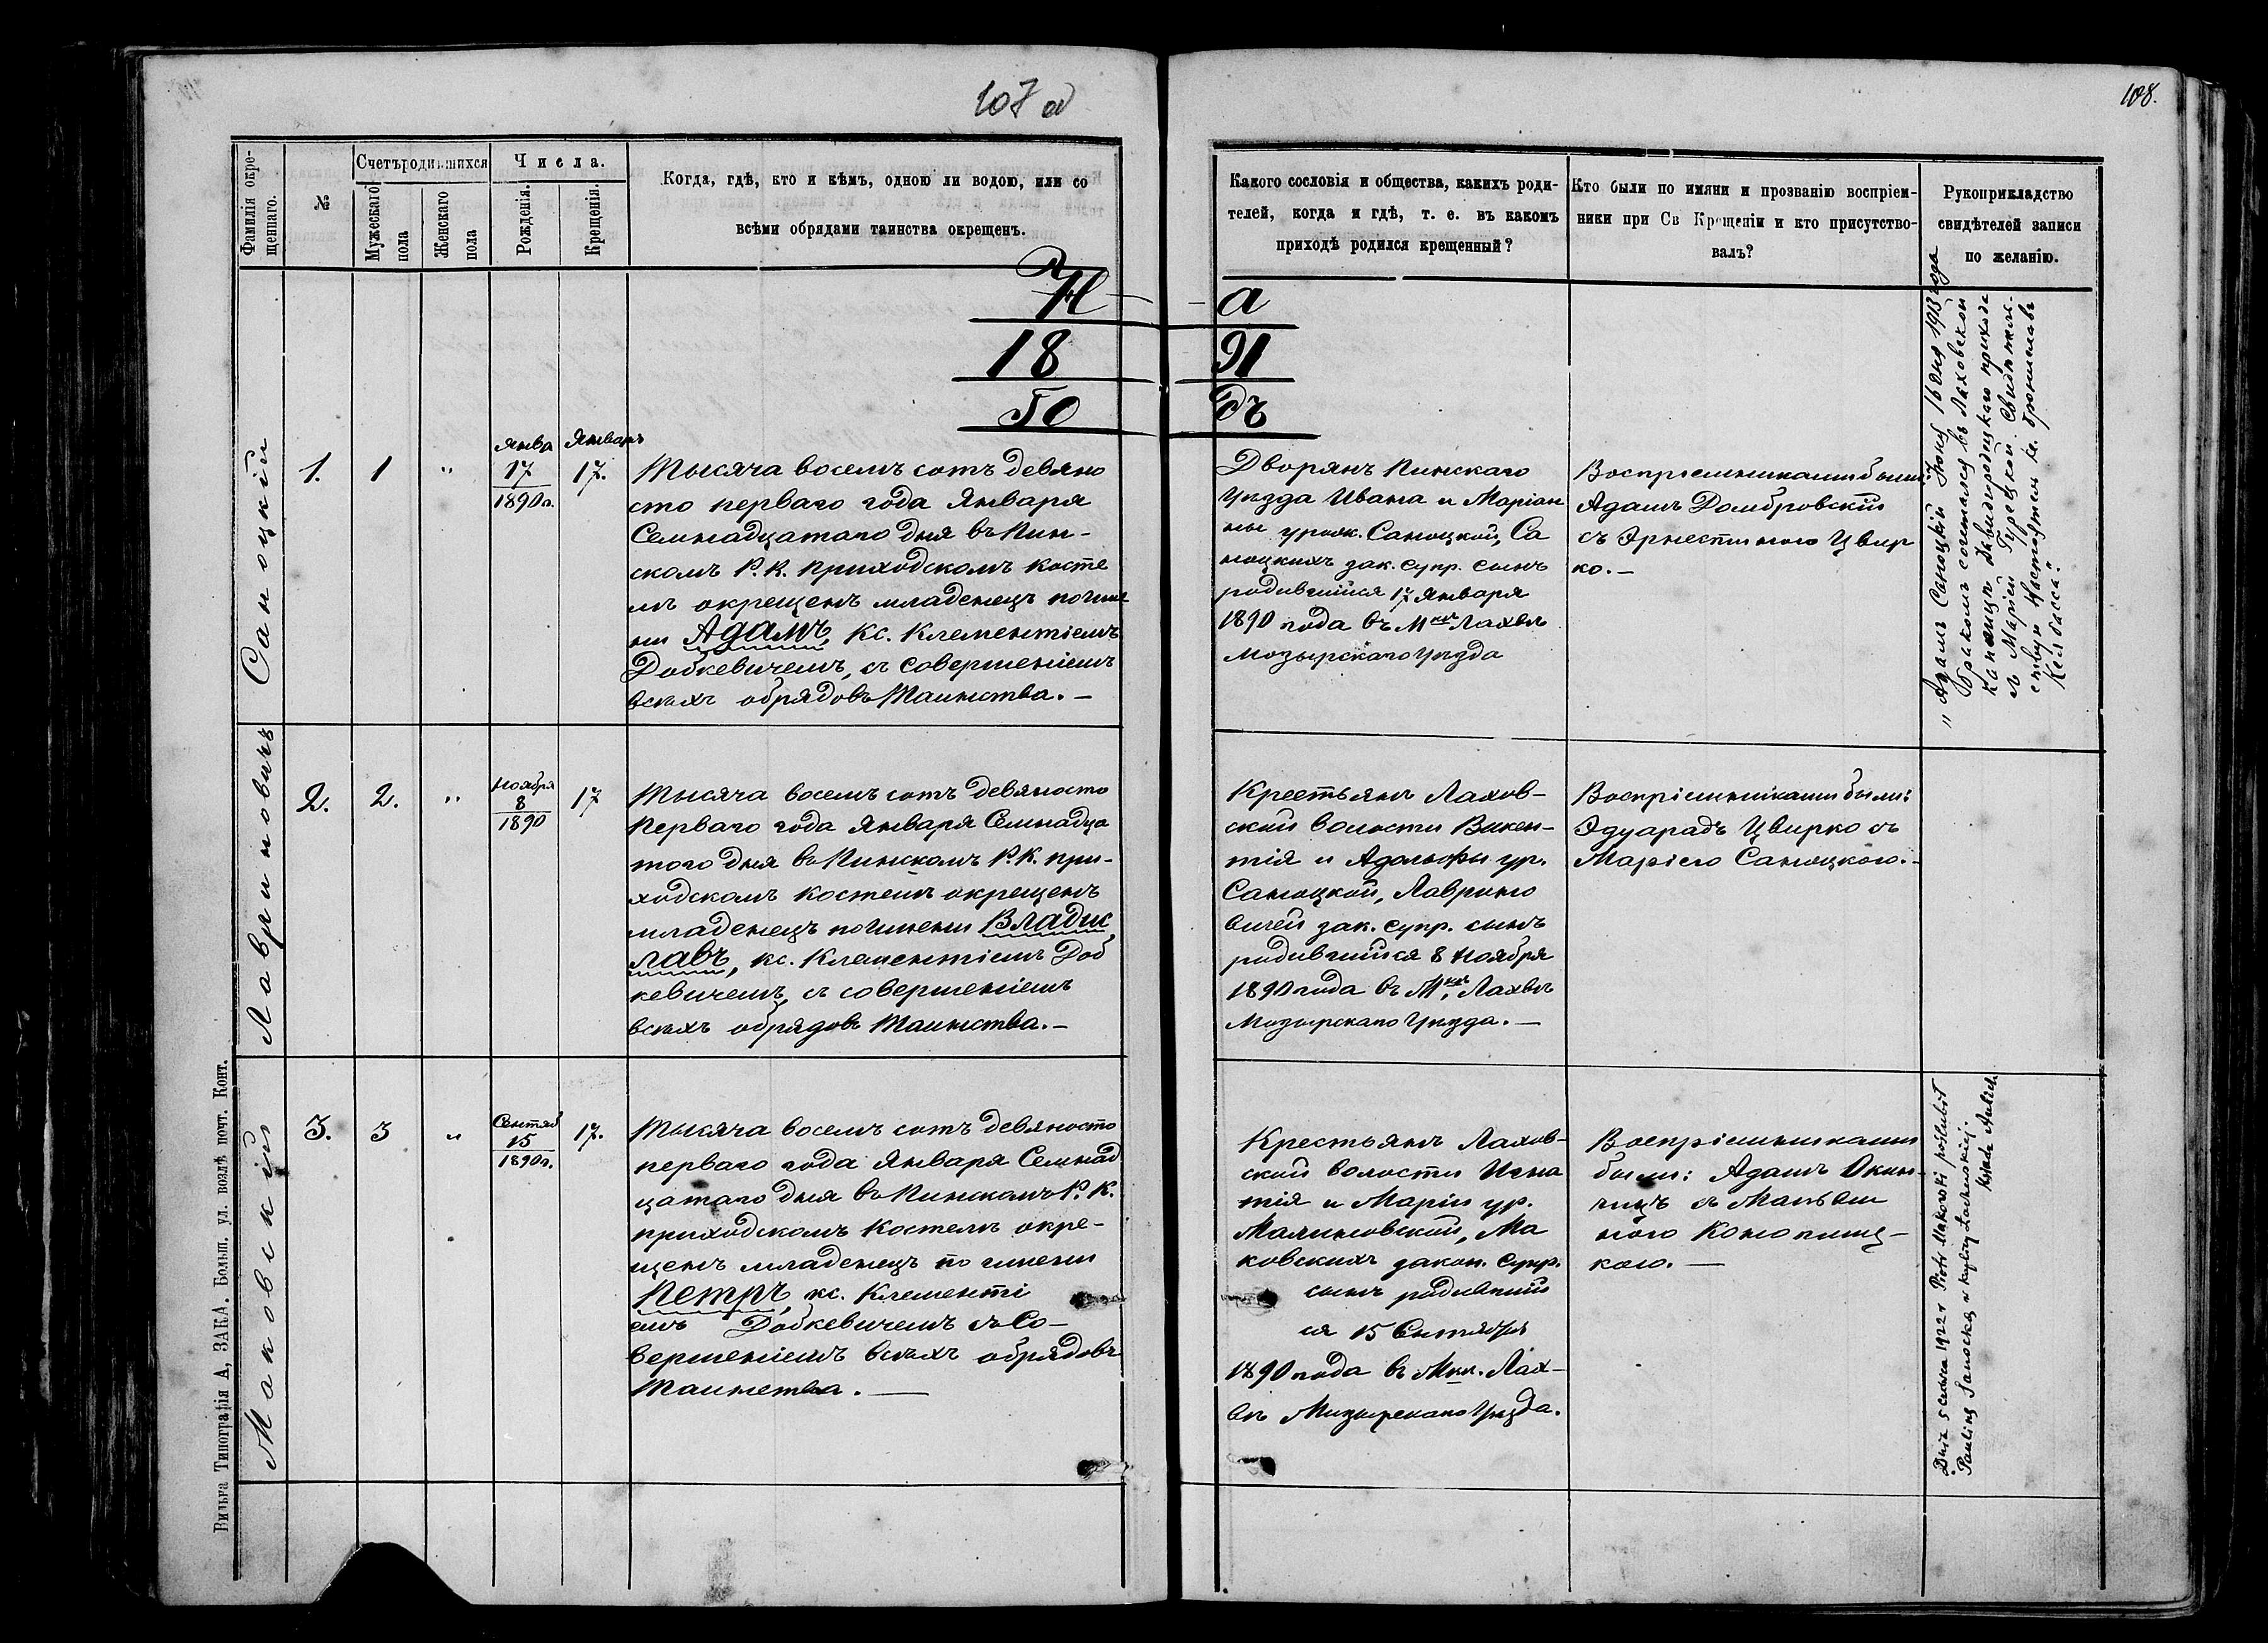 107 об
108.
Фамилія окре-
щеннаго.
№
Счетъ родившихся
Мужескаго
пола
Женскаго
пола
Числа.
Рожденія.
Крещенія.
Когда, гдѣ, кто и кѣмъ, одною ли водою, или со
всѣми обрядами таинства окрещенъ.
Какого сословія и общества, какихъ роди-
телей, когда и гдѣ, т. е. въ какомъ
приходѣ родился крещенный?
Кто были по имяни и прозванію воспріем-
ники при Св Крещеніи и кто присутство-
валъ?
Рукоприкладство
свидѣтелей записи
по желанію.
На
1891
годъ
Саноцкій
1.
1
"
Янва
17
1890 г.
Январь
17.
Тысяча восемъ сотъ девяно
сто перваго года Января
Семнадцатаго дня въ Пин-
скомъ Р. К. приходскомъ косте
лѣ окрещенъ младенецъ по име
ни Адамъ, кс. Клементіемъ
Добкевичемъ, съ совершеніемъ
всѣхъ обрядовъ Таинства. –
Дворянъ Пинскаго
уѣзда Ивана и Маріан
ны урож. Саноцкой, Са
ноцкихъ зак. супр. сынъ
родившійся 17 Января
1890 года въ Мкѣ Лахвѣ
Мозырскаго уѣзда
Воспріемниками были
Адамъ Домбровскій
съ Эрнестиною Цвир
ко. –
" Адамъ Саноцкій Іюня 16 дня 1913 года
бракомъ сочетался въ Лаховской
каплицѣ Давидгородцкаго прихода
съ Маріей Гурецкой. Свидѣтель-
ствую Настоятель кс. Брониславъ
Келбасса."
Лавриновичъ
2.
2.
"
Ноября
8
1890
17
Тысяча восемъ сотъ девяносто
Перваго года Января Семнадца
таго дня въ Пинскомъ Р. К. при-
ходскомъ костелѣ окрещенъ
младенецъ по имени Владис
лавъ, кс. Клементіемъ Доб
кевичемъ, съ совершеніемъ
всѣхъ обрядовъ Таинства. –
Крестьянъ Лахов-
ской волости Викен-
тія и Адольфы ур.
Саноцкой, Лаврино
вичей зак. супр. сынъ
родившійся 8 Ноября
1890 года въ Мкѣ Лахвѣ
Мозырскаго уѣзда. –
Воспріемниками были:
Эдуарадъ Цвирко съ
Маріею Саноцкою. –
Маковскій
3.
3
"
Сентяб
15
1890 г.
17.
Тысяча восемъ сотъ девяносто
перваго года Января Семнад
цатаго дня въ Пинскомъ Р. К.
приходскомъ костелѣ окре-
щенъ младенецъ по имени
Петръ, кс. Клементі
емъ Добкевичемъ съ Со-
вершеніемъ всѣхъ обрядовъ
Таинства. –
Крестьянъ Лахов-
ской волости Игна
тія и Маріи ур.
Малиновской, Ма
ковскихъ закон. супр.
сынъ родившій
ся 15 Сентября
1890 года въ Мкѣ. Лах-
вѣ Мозырскаго уѣзда.
Воспріемниками
были: Адамъ Окин-
чицъ съ
Коноплиц-
кою. –
Dnia 5 1922 r Piotr Makowski poślubił
Pauliną Sanocką w Łachewskiej.
Ksiądz
Вильна Типографія А, ЗАКА. Больш. ул. возлѣ почт. Конт.